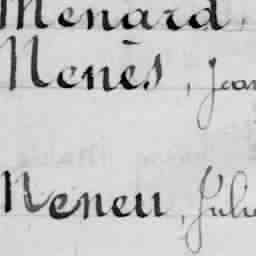 Menard,
Menès, Jean
Meneu, Julie